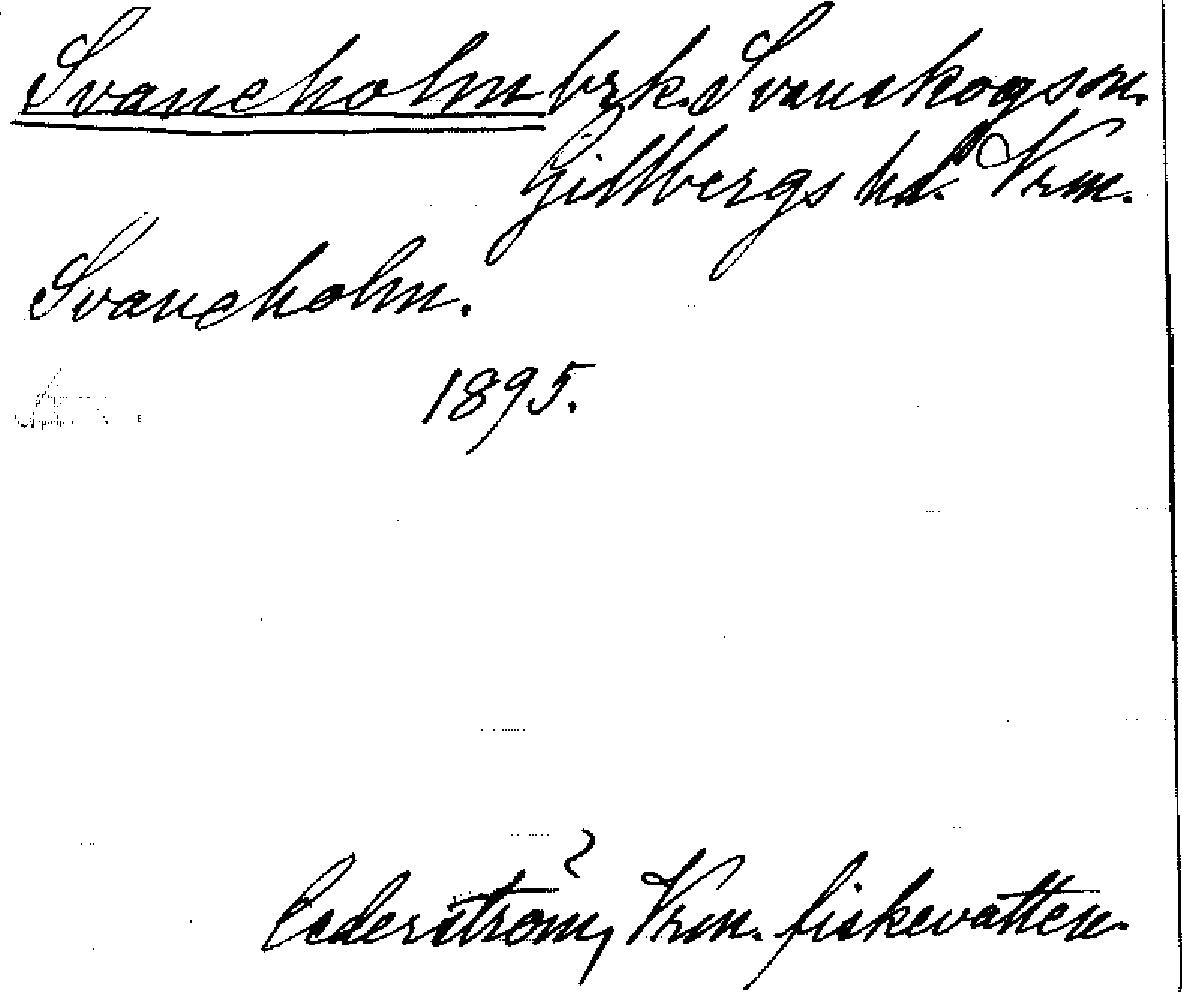 Svaneholm brk. Svaneskog sn.
Gillbergs hd. Vrm.
Svaneholm.
1895.
Cederström, Vrm. fiskevatten.